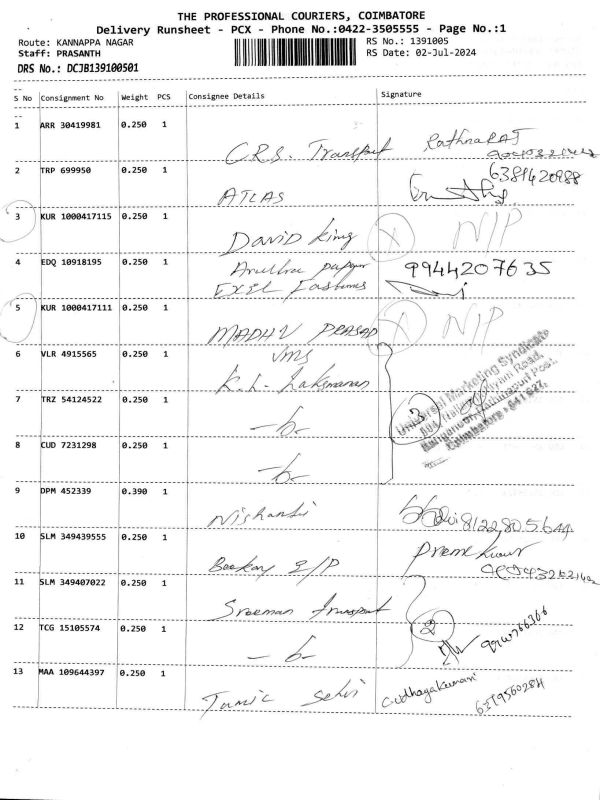 THE PROFESSIONAL COURIERS, COIMBATORE
Delivery Runsheet - PCX - Phone No.:0422-3505555 - Page No.:1
Route: KANNAPPA NAGAR RS No.: 1391005
Staff: PRASANTH RS Date: 02-Jul-2024
DRS No.: DCJB139100501
S No Consignment No Weight PCS Consignee Details Signature
1 ARR 30419981 0.250 1 C.R.S. Transport
2 TRP 699950 0.250 1 ATLAS 6381420988
3 KUR 1000417115 0.250 1 David king X N/P
4 EDQ 10918195 0.250 1 9944207635
EXEL
5 KUR 1000417111 0.250 1 MADHV PRASAD X N/P
6 VLR 4915565 0.250 1 VMS
K.L. Laksmanan
7 TRZ 54124522 0.250 1 3
Universal Marketing Syndicate
8 CUD 7231298 0.250 1
Coimbatore - 641 027.
9 DPM 452339 0.390 1 Nishanth
10 SLM 349439555 0.250 1 Prem Kumar
11 SLM 349407022 0.250 1
12 TCG 15105574 0.250 1 2
13 MAA 109644397 0.250 1 Tamil Selvi